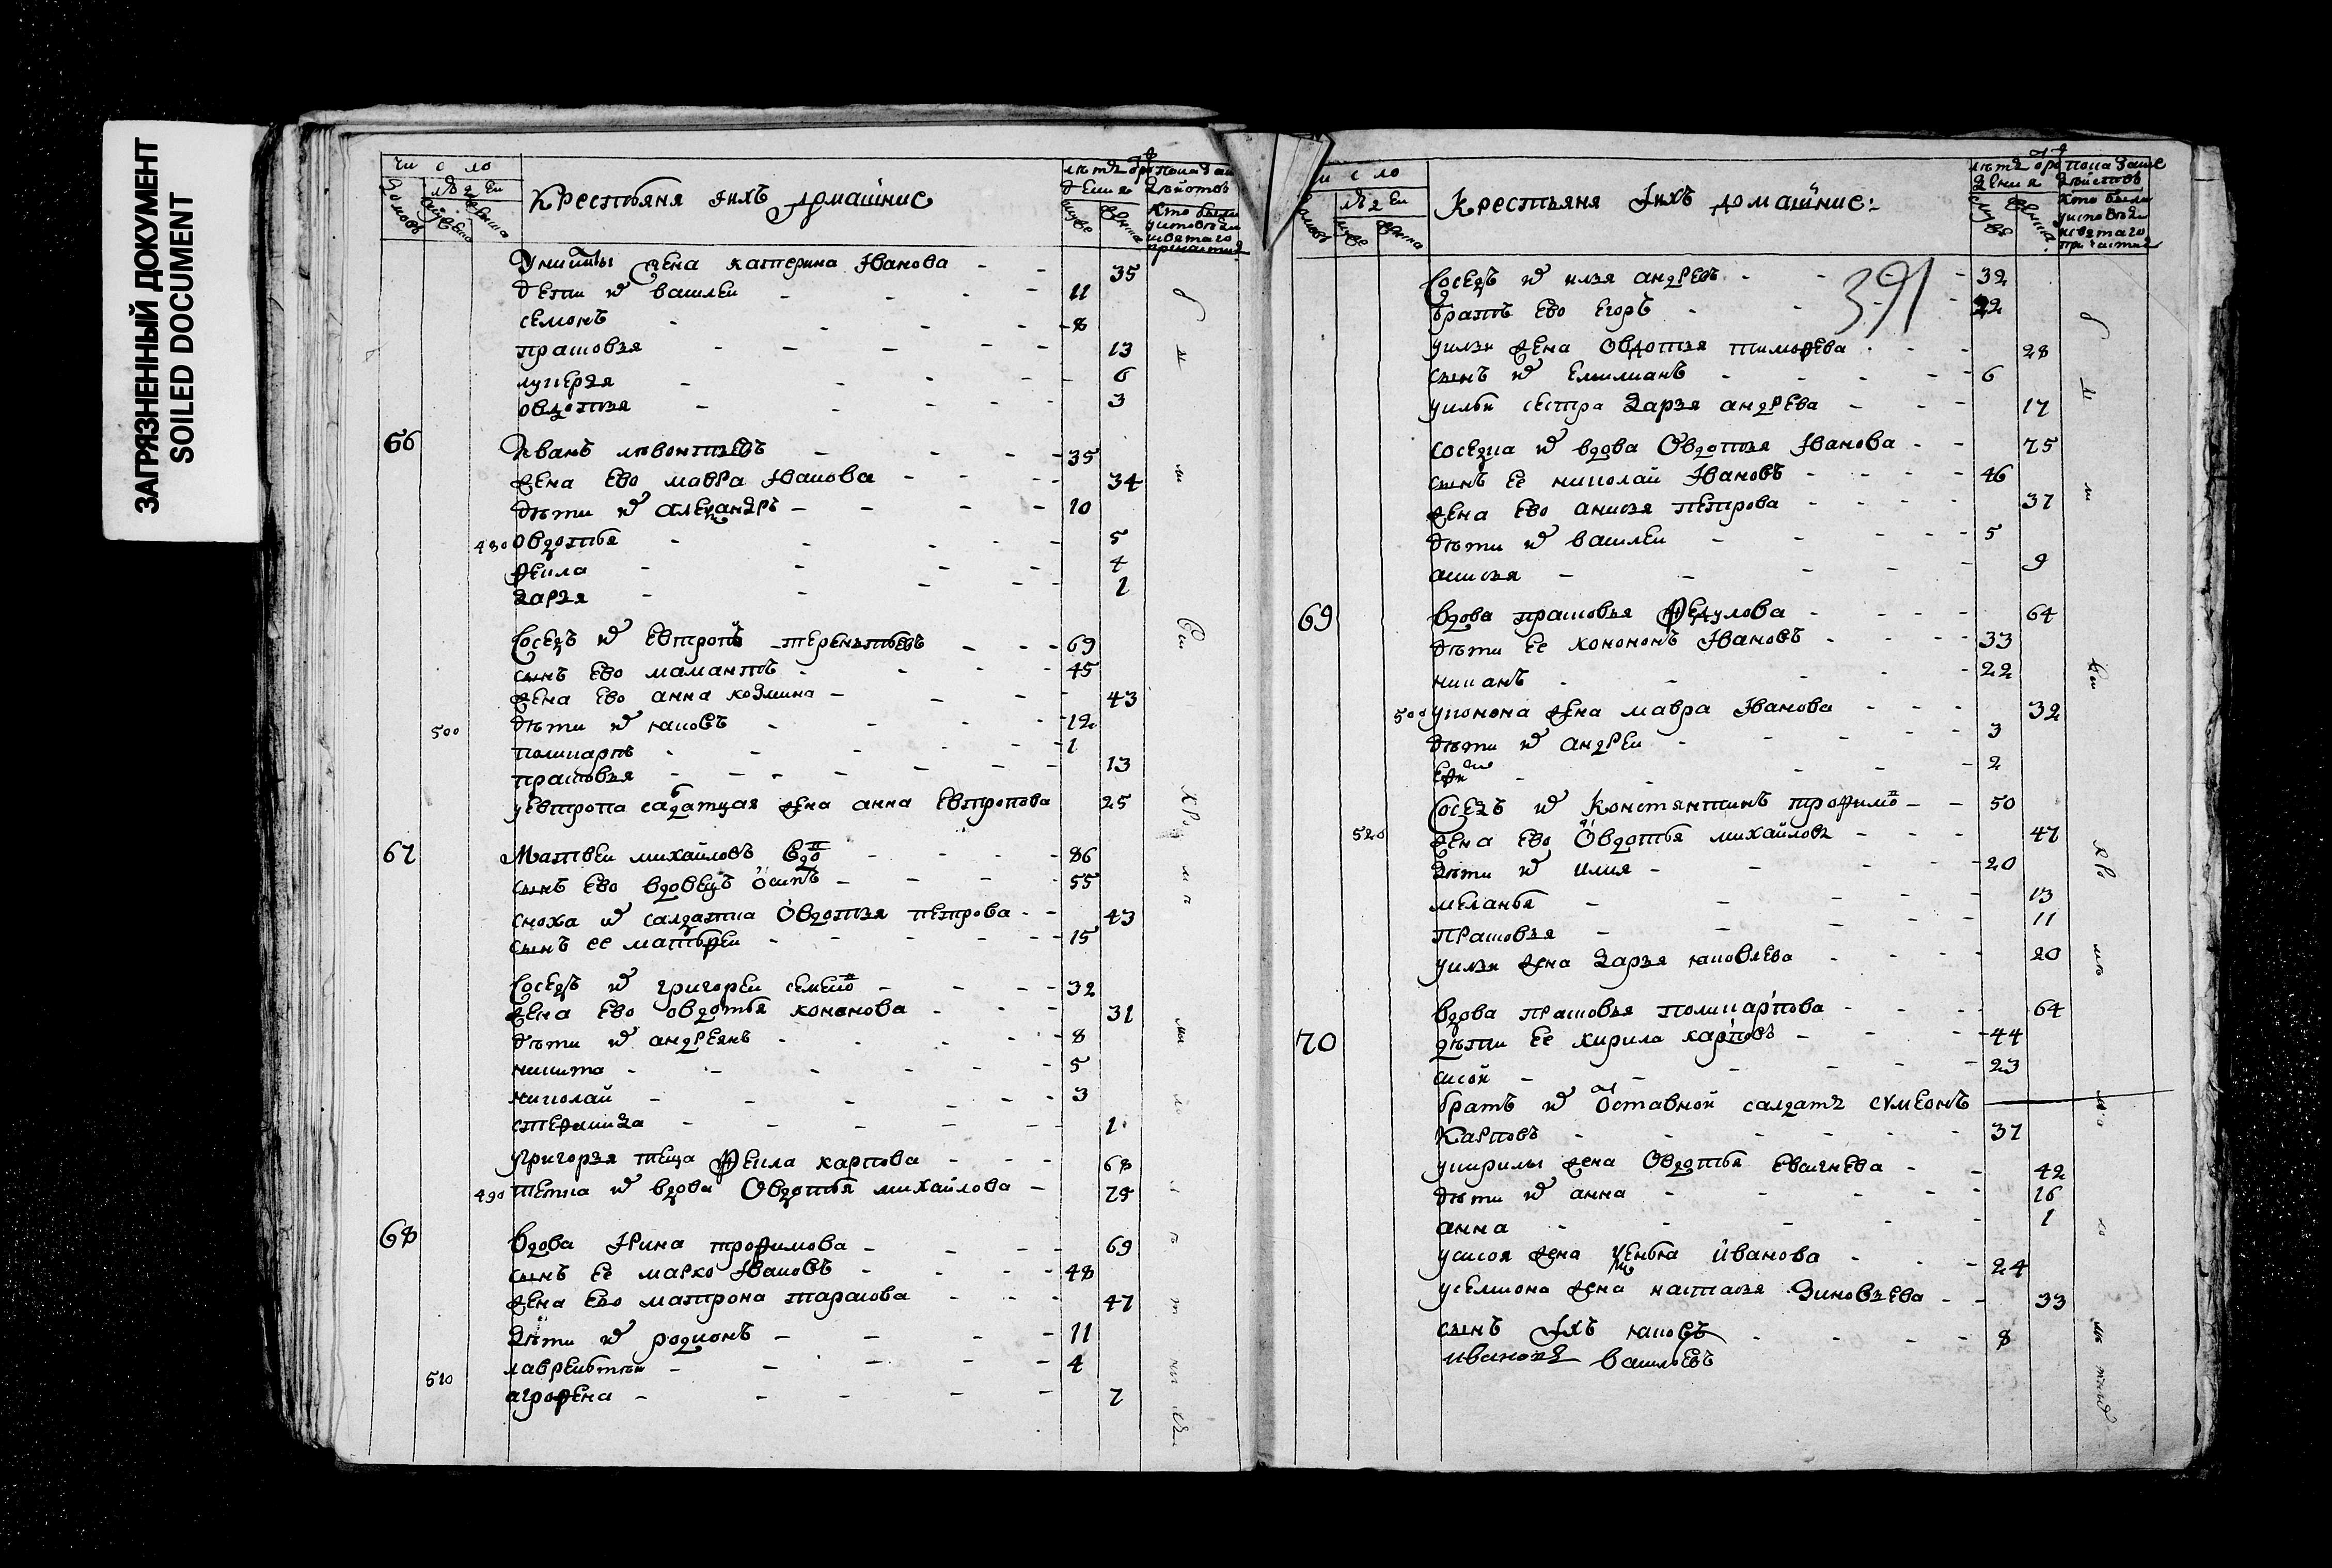 ЗАГРЯЗНЕННЫЙ ДОКУМЕНТ
SOILED DOCUMENT
число
Крестьяня ихъ домашние
Кто были
жена катерина Иванова - 35
дети ѿ василеи - 11
семонъ - 8
прасковя - 13
лукерзя - 6
овдотзя - 3
66 Иванъ левонтзевъ - 35
жена ево мавра Иванова - 34
дѣти ѿ александръ - 10
430 овдотья - 5
фекла - 4
дарзя - 1
Соседъ ѿ евтропъ терентьевъ - 69
сынъ ево мамантъ - 45
жена ево анна козмина - 43
500 дѣти ѿ яковъ - 12
поликарпъ - 1
прасковзя - 13
уевтропа салдатцкая жена анна евтропова 25
67 Матвеи михаиловъ вдо - 86
сынъ ево вдовецъ осипъ - 55
сноха ѿ салдатка Овдотзя петрова - 43
сынъ ее - 15
Соседъ ѿ григореи семено - 32
жена ево овдотья кононова - 31
дѣти ѿ андреянъ - 8
никита - 5
николай - 3
степанида - 1
угригорзя теща Фекла карпова - 68
490 тетка ѿ вдова Овдотья михайлова - 75
68 Вдова Ирина трофимова - 69
сынъ ее марко Ивановъ - 48
жена ево матрона тарасова - 47
дѣти ѿ родионъ - 11
510 лаврентеи - 4
агрофена - 7
число
Крестьяня ихъ домашние:
Кто были
391
Соседъ ѿ илзя андреевъ - 32
братъ ево егоръ - 22
уилзи жена Овдотзя тимофева - 28
сынъ ѿ емилианъ - 6
уильи сестра дарзя андрева - 17
соседка ѿ вдова Овдотзя Иванова - 75
сынъ ее николай Ивановъ - 46
жена ево анисзя петрова - 37
дѣти ѿ василеи - 5
анисзя - 9
69 Вдова прасковья Федулова - 64
дѣти ее конононъ Ивановъ - 33
22
500 уконона жена мавра Иванова - 32
дѣти ѿ андреи - 3
2
Соседъ ѿ Констянтинъ трофимо - 50
520 жена ево Овдотья михайлова - 47
дѣти ѿ илия - 20
меланья - 13
прасковзя - 11
уилзи жена дарзя яковлева - 20
Вдова прасковья поликарпова - 64
70 дѣти ее кирила карповъ - 44
сисой - 23
братъ ѿ оставной салдатъ сумеонъ
Карповъ - 37
укирилы жена Овдотья - 42
дѣти ѿ анна - 16
анна - 1
усисоя жена иванова - 24
усемиона жена настасзя Зиновзева - 33
сынъ ихъ яковъ - 8
васильевъ